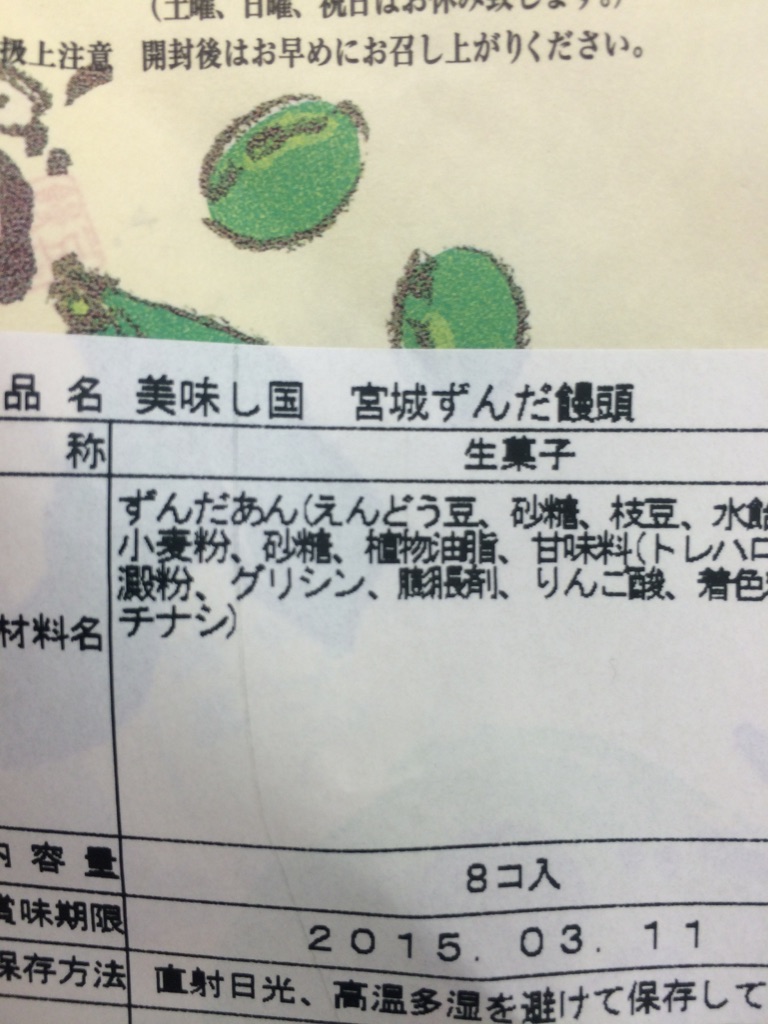 (土曜、日曜、祝日はお休み致します。)
扱上注意 開封後はお早めにお召し上がりください。
品名 美味し国 宮城ずんだ饅頭
称 生菓子
ずんだあん(えんどう豆、砂糖、枝豆、水飴
小麦粉、砂糖、植物油脂、甘味料(トレハロ
澱粉、グリシン、膨脹剤、りんご酸、着色
材料名 チナシ)
内容量 8コ入
賞味期限 2015.03.11
保存方法 直射日光、高温多湿を避けて保存して